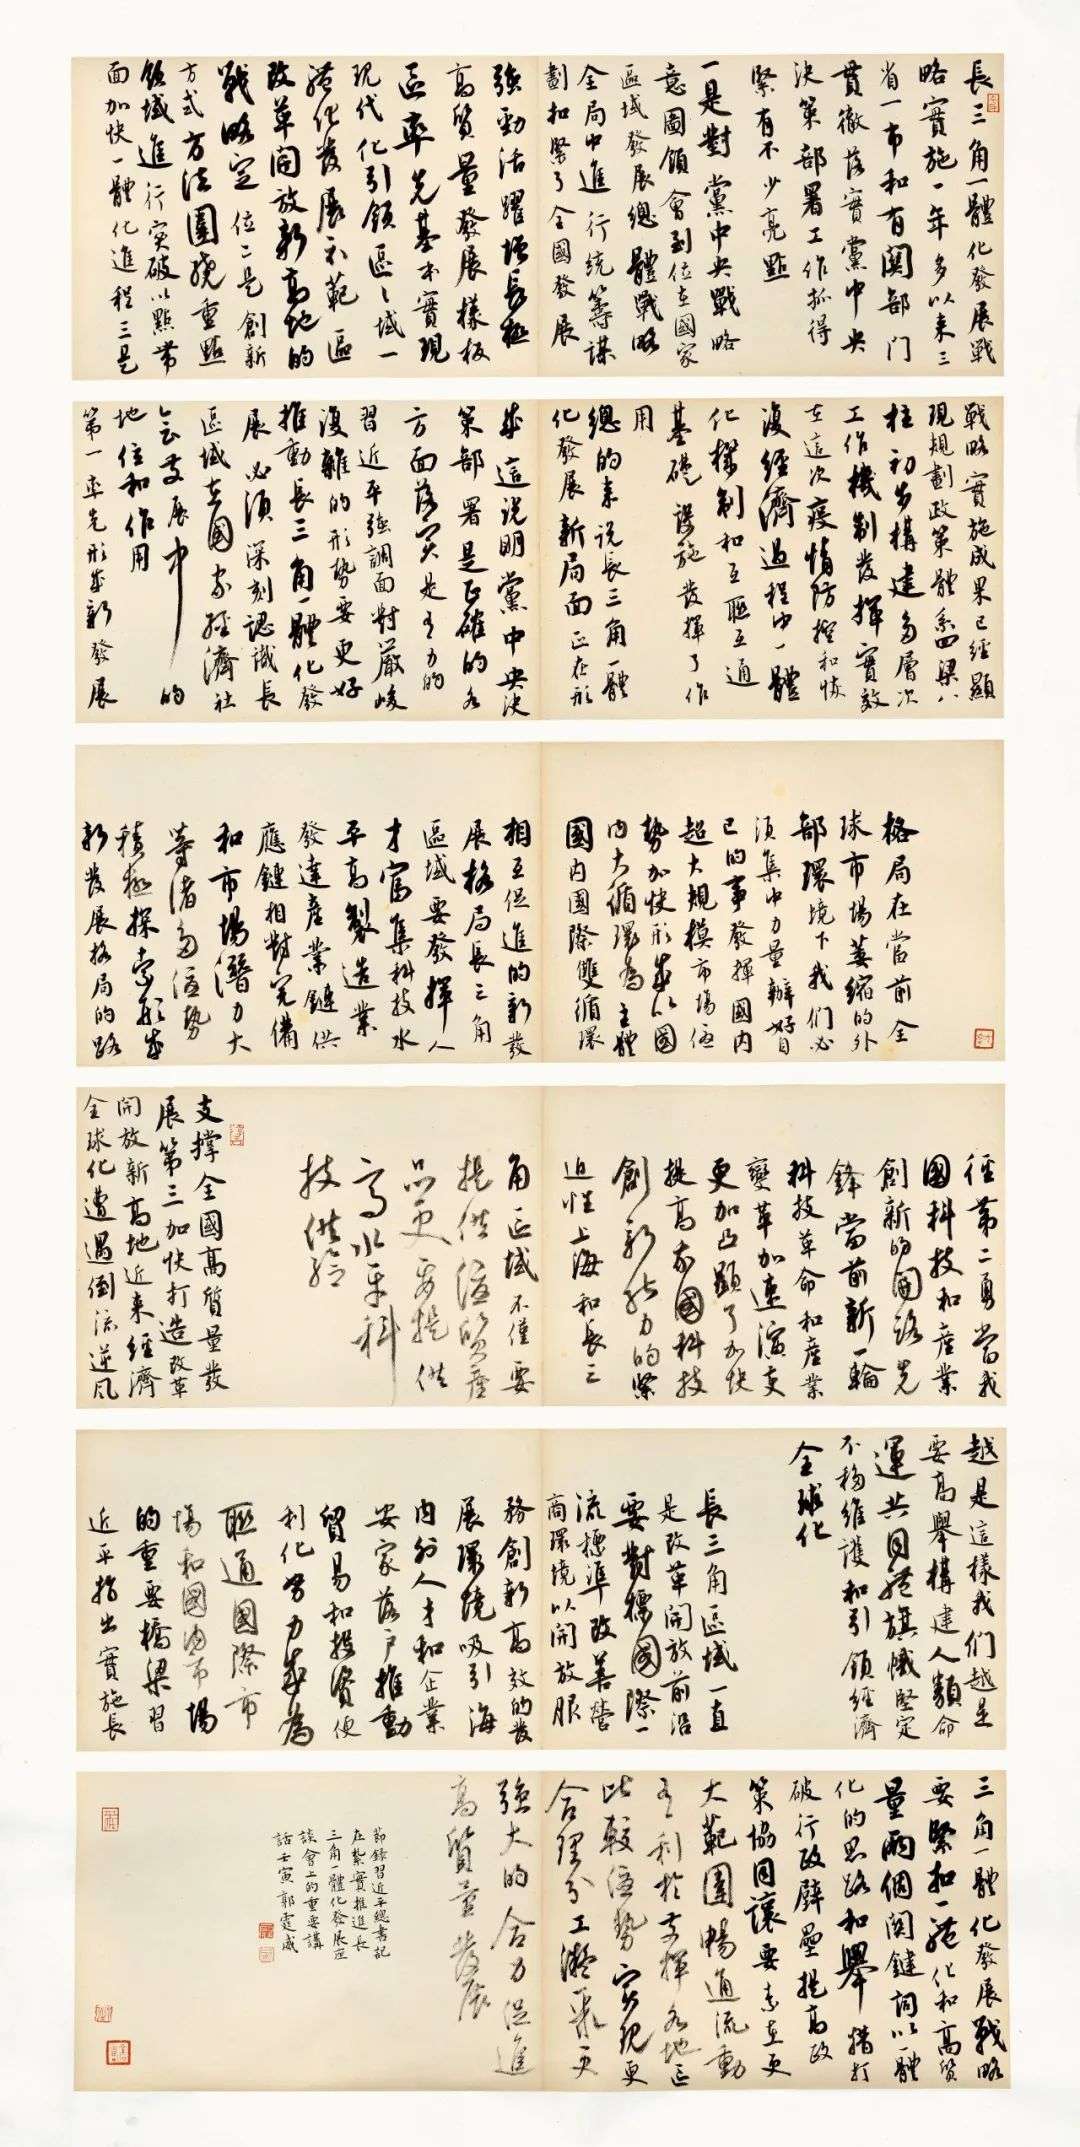 長三角一體化發展戰
略實施一年多以来三
省一市和有関部门
貫徹落實黨中央
決策部署工作抓得
緊有不少亮點
一是對黨中央戰略
意圖領會到位在國家
區域發展總體戰略
全局中進行统籌謀
劃扣緊了全國發展
強勁活躍增長極
高質量發展樣板
區率先基本實現
現代化引領區々域一
體化發展示範區
改革開放新高地的
戰略定位二是創新
方式方法圍繞重點
領域進行突破以點帶
面加快一體化進程三是
戰略實施成果已經顯
現規劃政策體系四梁八
柱初步構建多層次
工作機制發揮實效
在這次疫情防控和恢
復經濟過程中一體
化機制和互聯互通
基礎設施發揮了作
用
總的来说長三角一體
化發展新局面正在形
成這说明黨中央決
策部署是正確的各
方面落实是有力的
習近平強調面對嚴峻
復雜的形勢要更好
推動長三角一體化發
展必須深刻認識長
區域在國家經濟社
会发展中的
地位和作用
第一率先形成新發展
格局在當前全
球市場萎縮的外
部環境下我们必
須集中力量辦好自
己的事發揮國内
超大規模市場優
勢加快形成以國
内大循環為主體
國内國際雙循環
相互促進的新發
展格局長三角
區域要發揮人
才富集科技水
平高製造業
發達産業鏈供
應鏈相對完備
和市場潛力大
等诸多優勢
積極探索形成
新發展格局的路
徑第二勇當我
國科技和産業
創新的開路先
鋒當前新一輪
科技革命和産業
變革加速演变
更加凸顯了加快
提高我國科技
創新能力的緊
迫性上海和長三
角区域不僅要
提供優質産
品更要提供
高水平科
技供给
支撐全國高質量發
展第三加快打造改革
開放新高地近来經濟
全球化遭遇倒流逆风
越是這樣我们越是
要高舉構建人類命
運共同體旗幟堅定
不移維護和引領經濟
全球化
長三角區域一直
是改革開放前沿
要對標國際一
流標準改善營
商環境以開放服
務創新高效的發
展環境吸引海
内外人才和企業
安家落户推動
貿易和投資便
利化努力成為
聯通國際市
場和國内市場
的重要橋梁習
近平指出實施長
三角一體化發展戰略
要緊扣一體化和高質
量兩個関鍵詞以一體
化的思路和舉措打
破行政壁壘提高政
策協同讓要素在更
大範圍暢通流動
有利於发揮各地区
比較優勢实现更
合理分工凝聚更
強大的合力促進
高質量發展
節錄習近平總書記
在紮實推進長
三角一體化發展座
談會上的重要講
話壬寅郭雯威